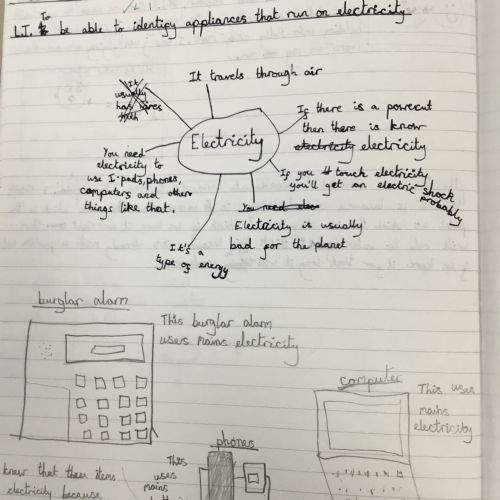 L.I. To be able to identify appliances that run on electricity
It travels through air
It
usually
has wires
If there is a powercut
then there is know
electricity electricity
Electricity
You need
electricity to
use I-pads, phones,
computers and other
things like that.
If you touch electricity
you'll get an electric shock
probably
You need elec
Electricity is usually
bad for the planet
It's a
type of energy
burglar alarm
This burglar alarm
users mains electricity
computer
This uses
mains
electricity
phones
This
uses
mains
know that these items
electricity because